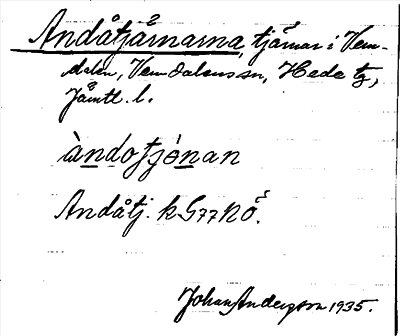 Andåtjårnarna, tjårnar i Vem-
dalen, Vemdalens sn, Hede tg,
Jämtl. l.
àndotjónan
Andåtj. k G77 NÖ.
Johan Anderson 1935.